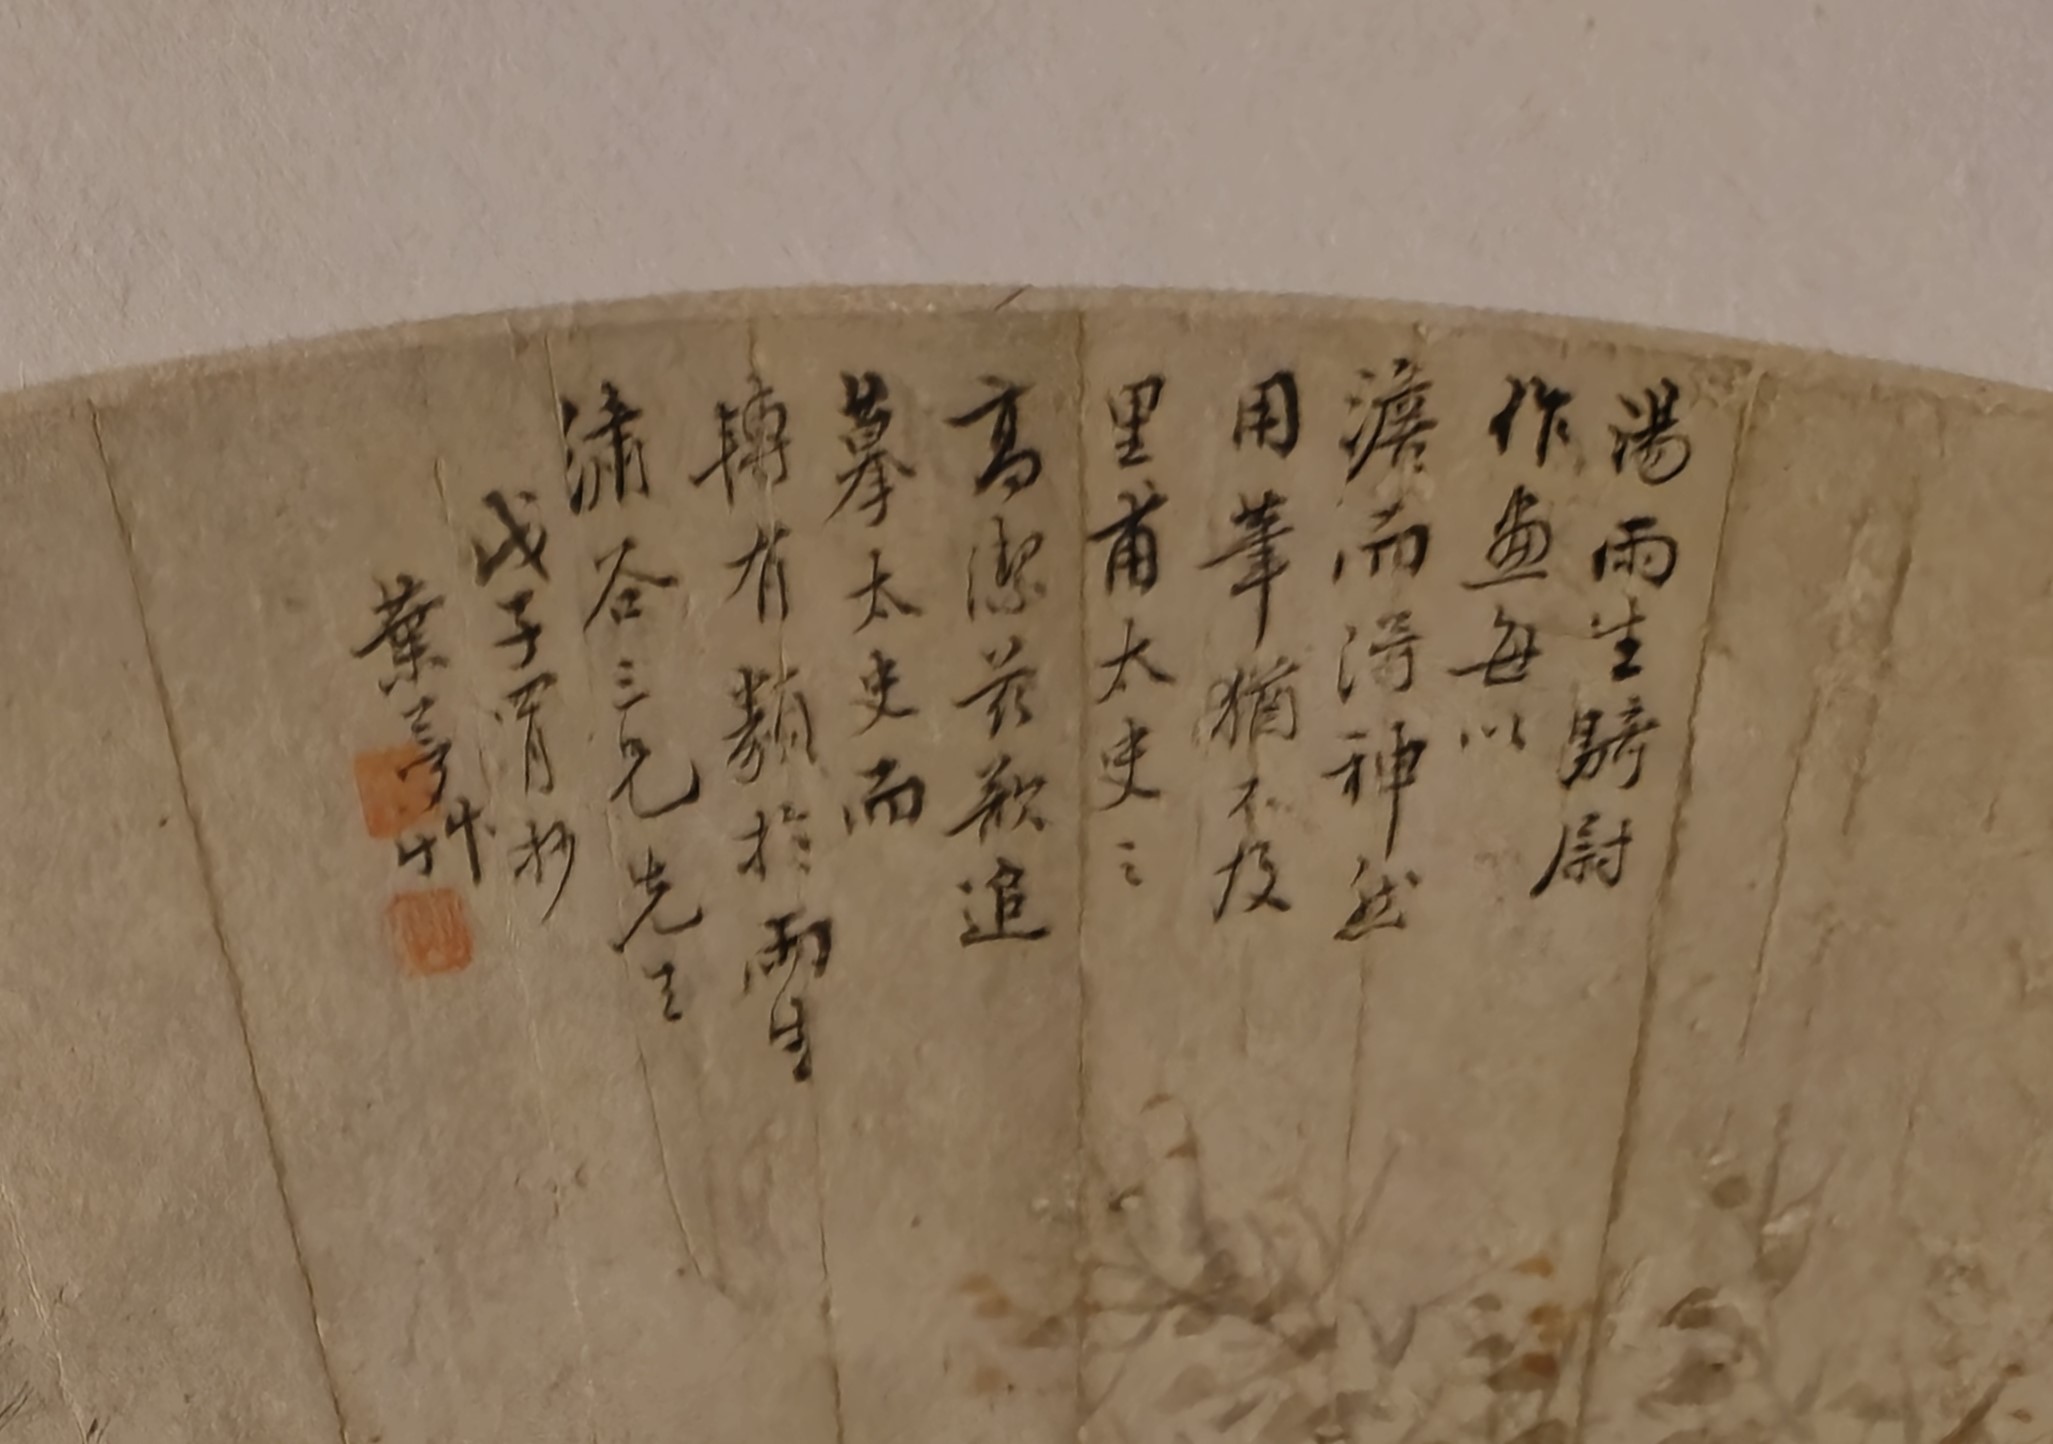 湯雨生騎尉
作畫每以
澹而得神然
用筆猶不及
里甫太史之
高潔茲歒追
摹太史而
轉有類於雨生
繡谷三兄先生
戊子四月杪
葉夢艸